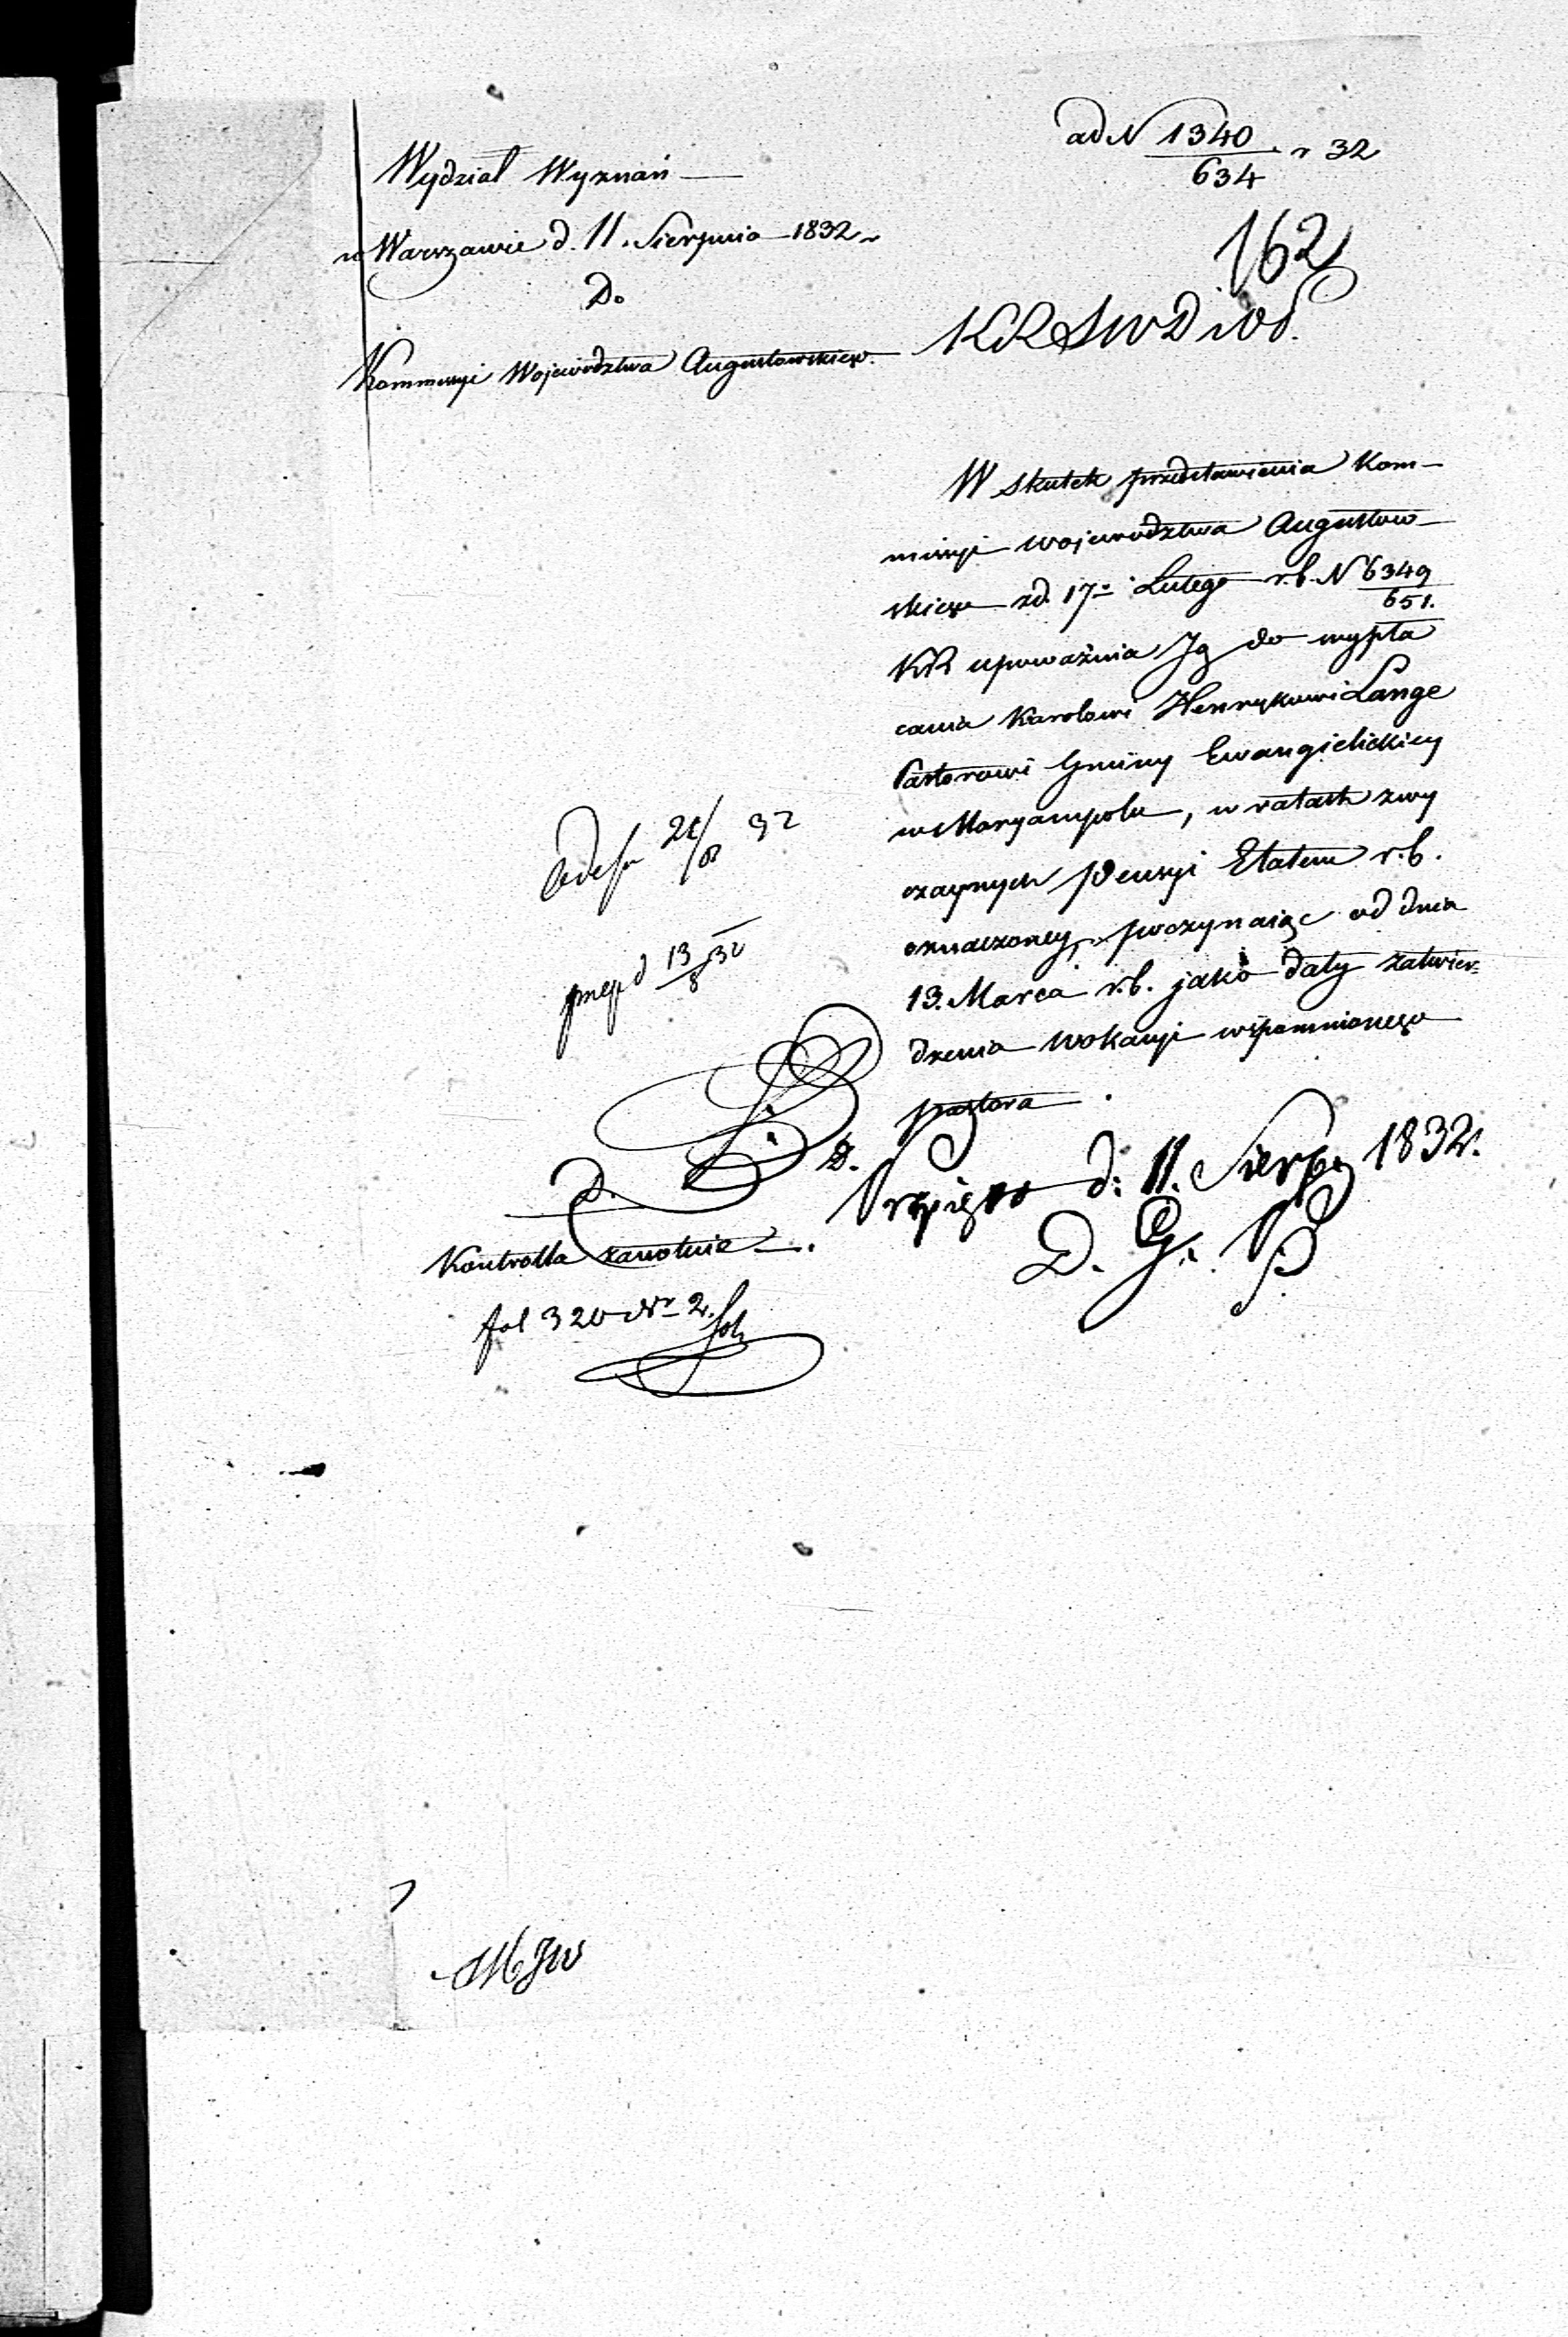 ad N 1340/634 r 32
162
Wydział Wyznań
w Warszawie d. 11. Sierpnia 1832 r
Do
Kommissyi Województwa Augustowskiego.
KRSWD i OP.
W skutek przedstawienia Kom-
missyi województwa Augustow-
skiego z d. 17o Lutego r.b. N 6349/651.
KR upoważnia Ją do wypła
cania Karolowi Henrykowi Lange
Pastorowi Gminy Ewangielickiey
w Maryampolu, w ratach zwy
czaynych Pensyi Etatem r.b.
oznaczoney, poczynaiąc od dnia
13. Marca r.b. jako daty zatwier=
dzenia wokacyi wspomnionego
pastora.
21/8 32
13/8 32
d: 11. Sierp 1832 r.
D. G.
Kontrolla zanotuie.
fol 320 Nr 2.